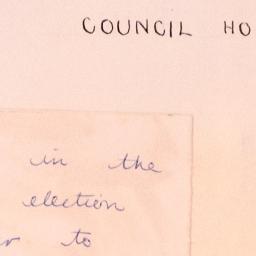 COUNCIL HO
in the
election
to